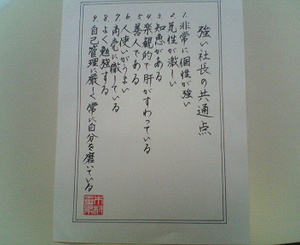 強い社長の共通点
1 非常に個性が強い
2 気性が激しい
3 知恵がある
4 楽観的で肝がすわっている
5 善人である
6 人使いがうまい
7 商売に徹している
8 よく勉強する
9 自己管理に厳しく常に自分を磨いている